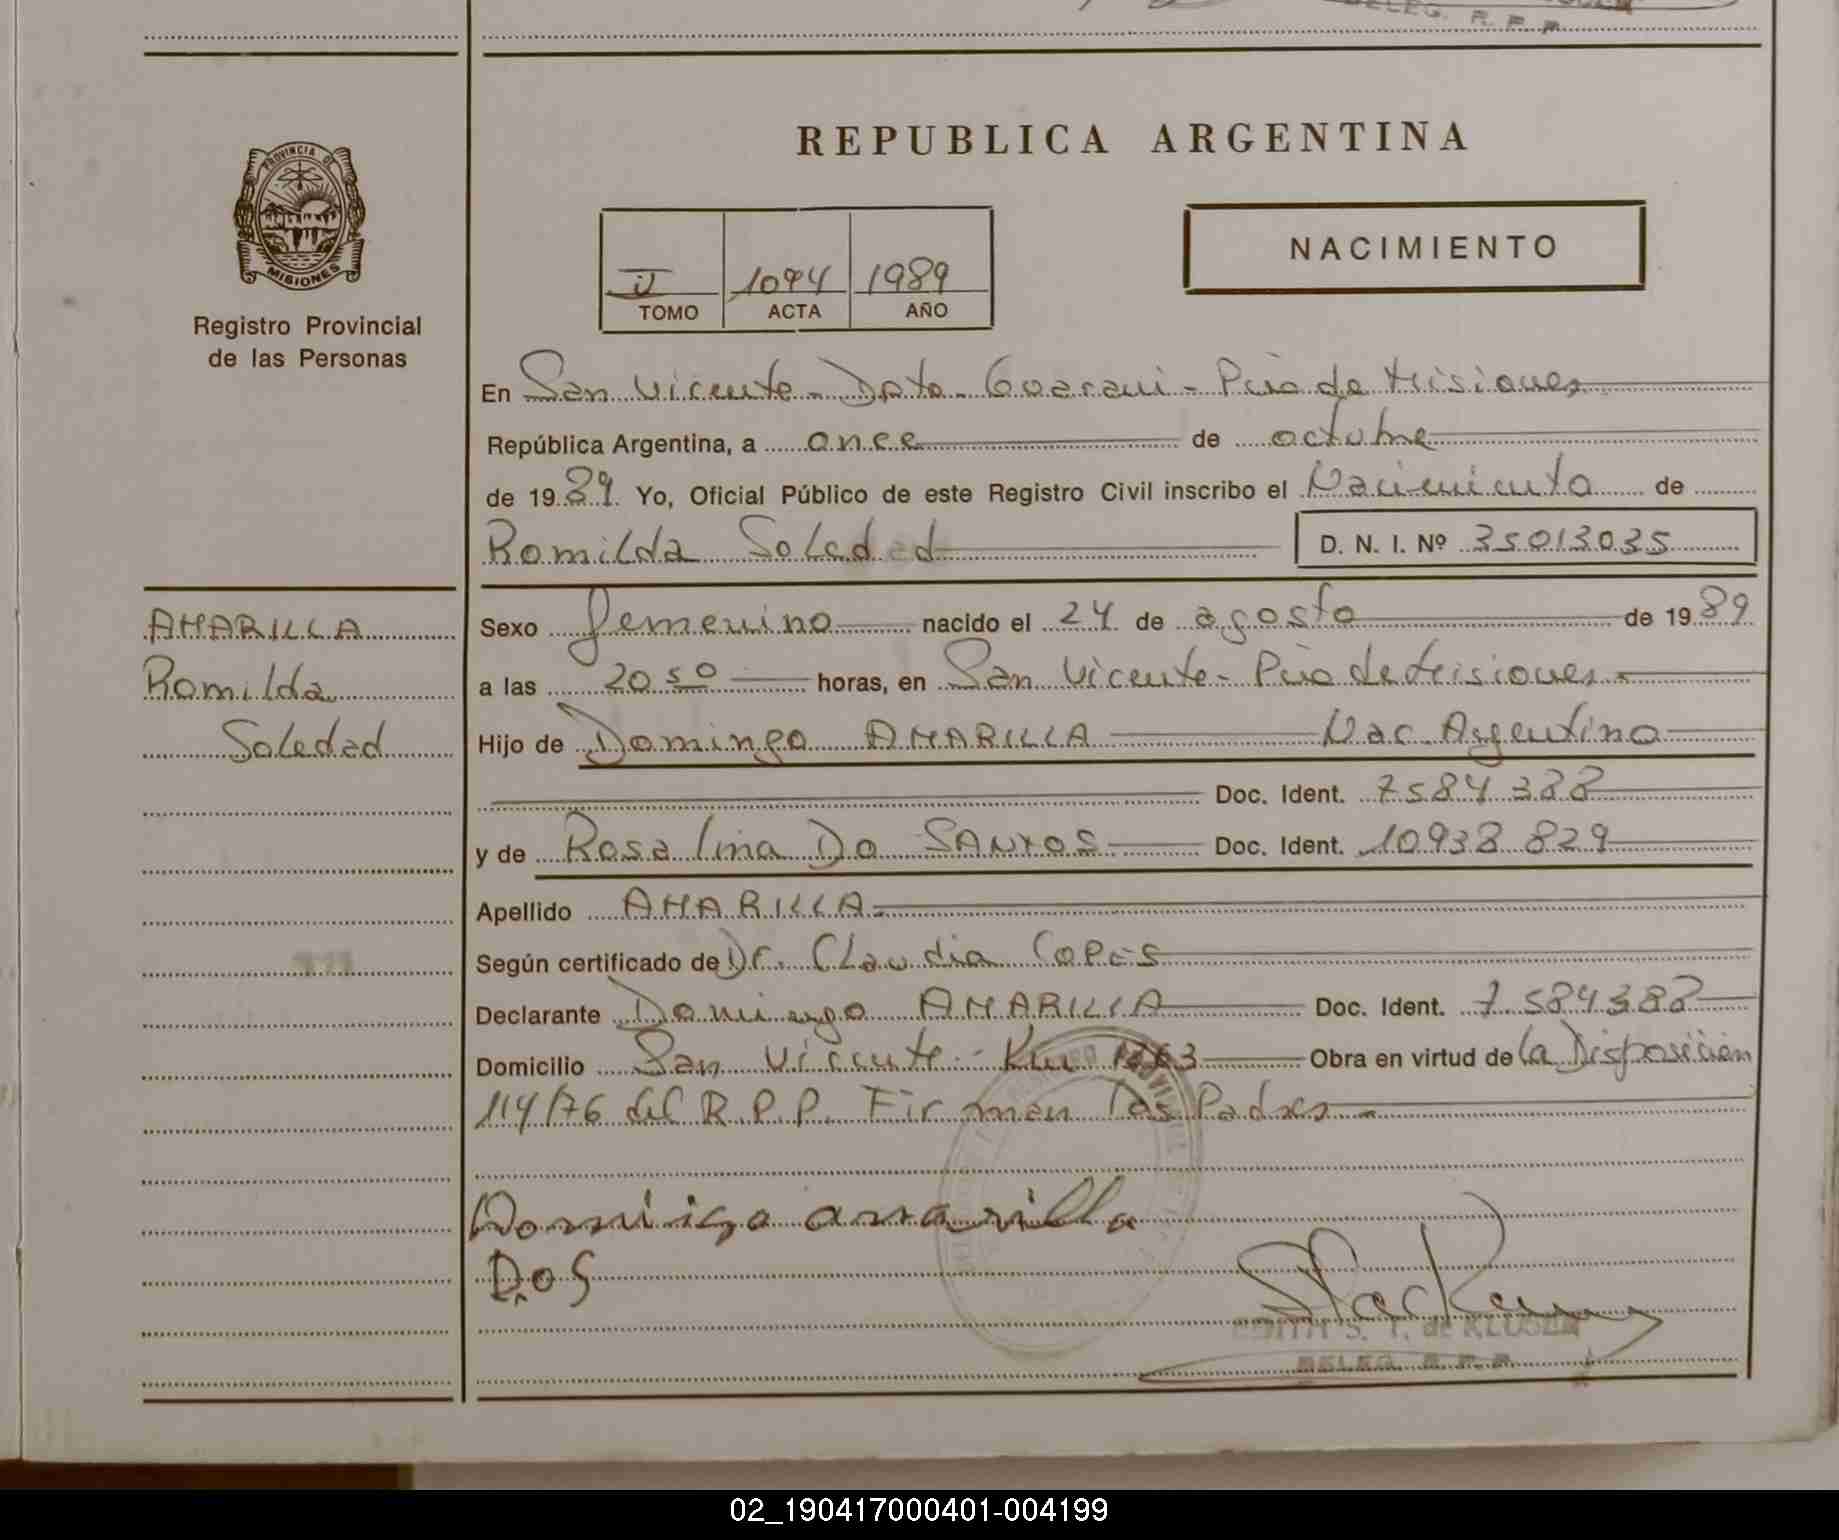 DELEG. R. P. P.
REPUBLICA ARGENTINA
PROVINCIA DE
MISIONES
Registro Provincial
de las Personas
II 1094 1989
TOMO ACTA AÑO
NACIMIENTO
En San Vicente - Dpto. Guarani - Pcia de Misiones
República Argentina, a once de octubre
de 1989 Yo, Oficial Público de este Registro Civil inscribo el Nacimiento de
Romilda Soledad D. N. I. Nº 35013035
AMARILLA
Romilda
Soledad
Sexo femenino nacido el 24 de agosto de 1989
a las 20 50 horas, en San Vicente - Pcia de Misiones.
Hijo de Domingo AMARILLA Nac. Argentino
Doc. Ident. 7584388
y de Rosalina Do SANTOS Doc. Ident. 10938829
Apellido AMARILLA.
Según certificado de Dr. Claudia Copes
Declarante Domingo AMARILLA Doc. Ident. 7.584388
Domicilio San Vicente - Km 1263 Obra en virtud de la Disposición
114/76 del R.P.P. Firman los Padres -
Domingo amarilla
D.o S
EDITH S. T. de KLUSEN
DELEG. R. P. P.
02_190417000401-004199